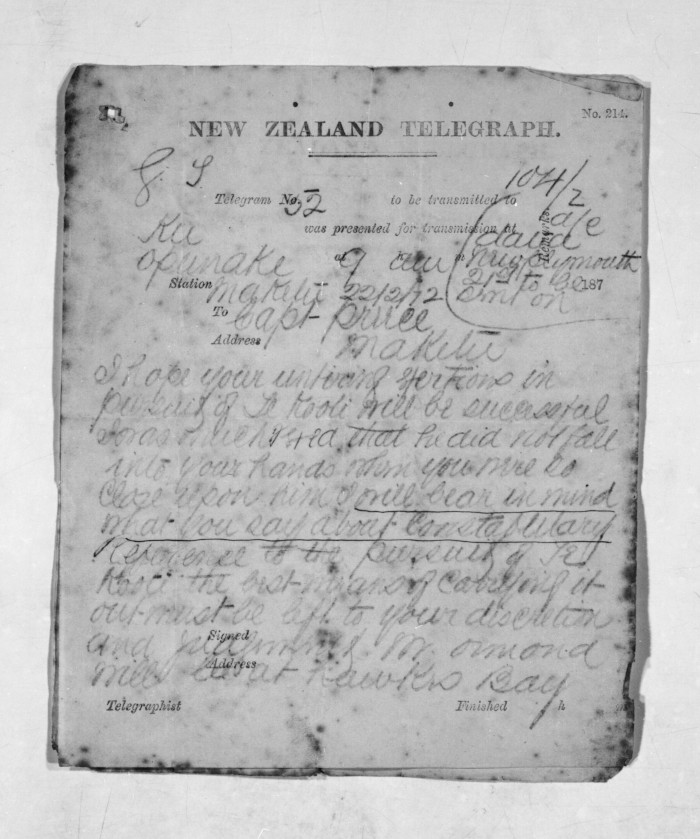 No. 214.
NEW ZEALAND TELEGRAPH.
G. S. 104/2
Telegram No. 52 to be transmitted to
was presented for transmission at
Remarks. a/c
dated
Opunake at 9 h am m New Plymouth
21st to be
Station 187
Maketu 22/2/72 sent on
To Capt Preece
Address Maketu
I hope your untiring exertions in
pursuit of Te Kooti will be successful
I was much that he did not fall
into your hands when you were so
close upon him I will bear in mind
what you say about Constabulary
Reference to the pursuit of Te
Kooti the best means of carrying it
out must be left to your discretion
Signed
and judgment Mr Ormond
Address
will be at Hawkes Bay
Telegraphist Finished h m